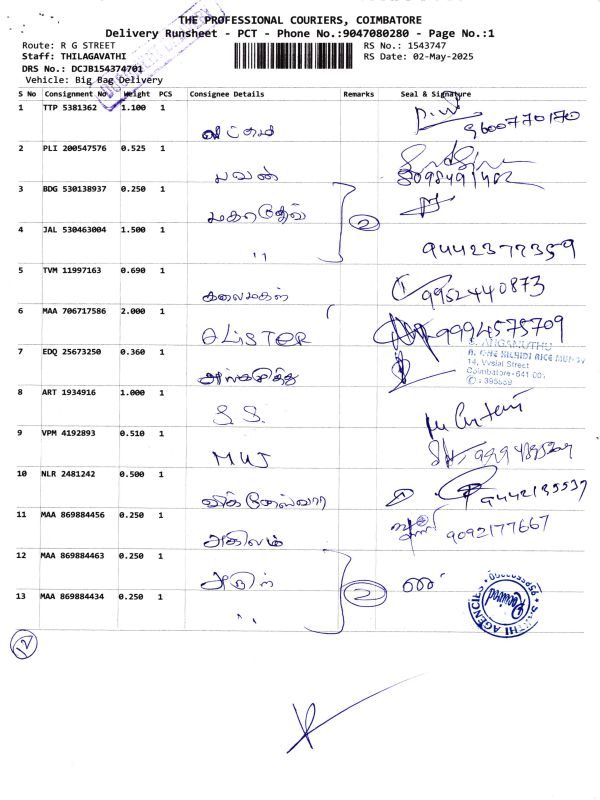 THE PROFESSIONAL COURIERS, COIMBATORE
Delivery Runsheet - PCT - Phone No.:9047080280 - Page No.:1
Route: R G STREET
RS No.: 1543747
Staff: THILAGAVATHI
RS Date: 02-May-2025
DRS No.: DCJB154374701
Vehicle: Big Bag Delivery
S No Consignment No. Weight PCS Consignee Details Remarks Seal & Signature
1 TTP 5381362 1.100 1
9600770170
2 PLI 200547576 0.525 1
பவன்
3 BDG 530138937 0.250 1
2
4 JAL 530463004 1.500 1
,, 9442377359
5 TVM 11997163 0.690 1
கலைமகள் 9952440873
6 MAA 706717586 2.000 1
ALISTER 9994575709
7 EDQ 25673250 0.360 1
ANGAMUTHU
14, Vysial Street
Coimbatore-641 001
8 ART 1934916 1.000 1
S.S.
9 VPM 4192893 0.510 1
MUJ
10 NLR 2481242 0.500 1
விக்னேஸ்வரா 9442135537
11 MAA 869884456 0.250 1
அகிலம் 9092177667
12 MAA 869884463 0.250 1
2
13 MAA 869884434 0.250 1
,,
SAKTHI AGENCIES
Received
12